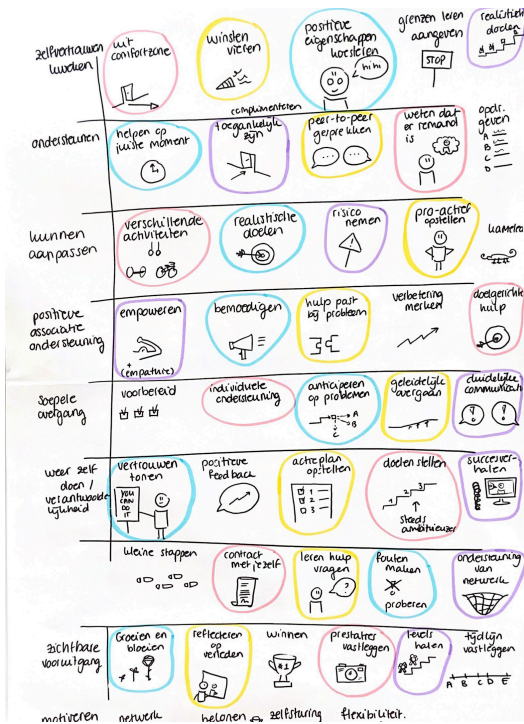 zelfvertrouwen
kweken
uit
comfortzone
winsten
vieren
positieve
eigenschappen
koesteren
hihi
grenzen leren
aangeven
STOP
realistische
doelen
complimenteren
ondersteunen
helpen op
juiste moment
toegankelijk
zijn
peer-to-peer
gesprekken
weten dat
er iemand
is
opdr.
geven
A
B
C
D
kunnen
aanpassen
verschillende
activiteiten
realistische
doelen
risico
nemen
pro-actief
opstellen
positieve
associatie
ondersteuning
empoweren
+
(empathie)
bemoedigen
hulp past
bij probleem
verbetering
merken
doelgerichte
hulp
soepele
overgang
voorbereid
individuele
ondersteuning
anticiperen
op problemen
A
B
C
geleidelijke
overgaan
duidelijke
communicatie
! !
weer zelf
doen /
verantwoorde
lijkheid
vertrouwen
tonen
YOU
CAN
DO
IT
positieve
feedback
actieplan
opstellen
1
2
3
doelen stellen
1 2 3
steeds
ambitieuzer
succesver-
halen
kleine stappen
contract
met jezelf
leren hulp
vragen
?
fouten
maken
proberen
ondersteuning
van
netwerk
zichtbare
vooruitgang
Groeien en
bloeien
reflecteren
op
verleden
winnen
#1
prestaties
vastleggen
levels
halen
tijdlijn
vastleggen
A B C D E
motiveren netwerk belonen zelfsturing flexibiliteit.